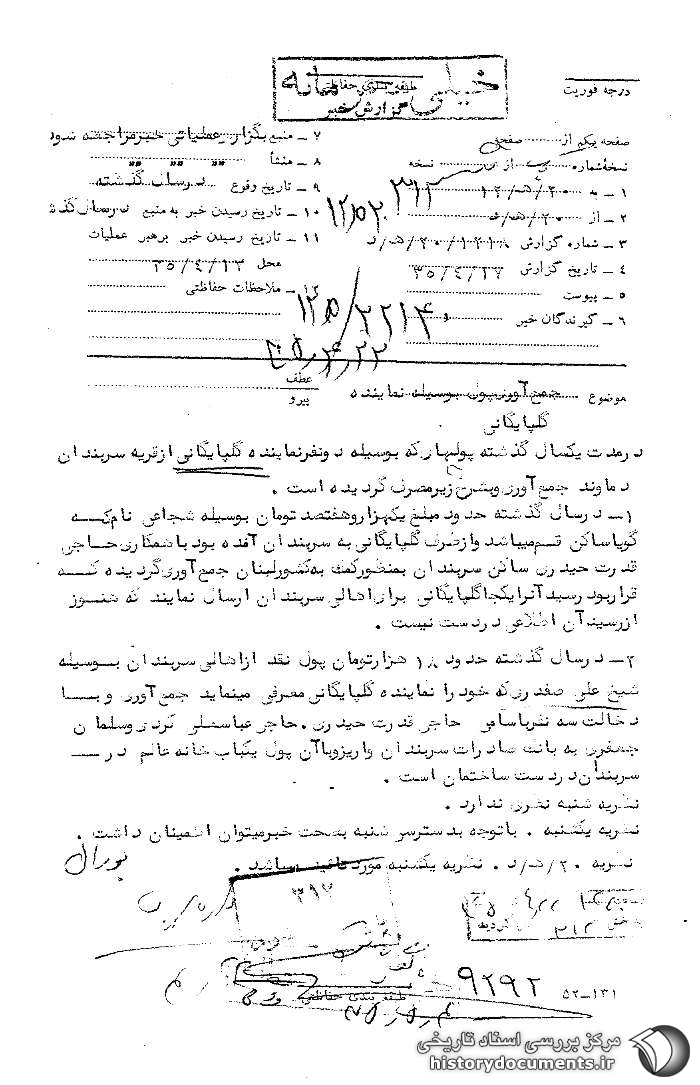 خیلی محرمانه
طبقه بندی حفاظتی
گزارش خبر
درجه فوریت
صفحه یکم از صفحه
نسخه شماره از نسخه
۱ ـ به ۲۰/ﻫ/۱۲ ۳۱۲
۲ ـ از ۲۰/ﻫ/د
۳ ـ شماره گزارش ۲۰/۱۲۱۸/ﻫ/د
۴ ـ تاریخ گزارش ۳۵/۴/۱۷
۵ ـ پیوست
۶ ـ گیرندگان خبر
۷ ـ منبع بگزارش عملیاتی خبر مراجعه شود
۸ ـ منشأ " " "
۹ ـ تاریخ وقوع در سال گذشته
۱۰ ـ تاریخ رسیدن خبر به منبع در سال گذشته
۱۱ ـ تاریخ رسیدن خبر برهبر عملیات
محل ۳۵/۴/۱۳
۱۲ ـ ملاحظات حفاظتی
۱۲۵/۲۲۱۴
موضوع جمع آوری پول بوسیله نماینده
گلپایگانی
عطف
پیرو
در مدت یکسال گذشته پولهائی که بوسیله دو نفر نماینده گلپایگانی از قریه سربندان
دماوند جمع آوری وبشرح زیر مصرف گردیده است .
۱ـ در سال گذشته حدود مبلغ یکهزار و هفتصد تومان بوسیله شجاعی نام که
گویا ساکن قم میباشد و از طرف گلپایگانی به سربندان آمده بود با همکاری حاجی
قدرت حیدری ساکن سربندان بمنظور کمک به کشور لبنان جمع آوری گردیده که
قرار بود رسید آنرا یکجا گلپایگانی برای اهالی سربندان ارسال نمایند که هنوز
از رسید آن اطلاعی در دست نیست .
۲ـ در سال گذشته حدود ۱۸ هزار تومان پول نقد از اهالی سربندان بوسیله
شیخ علی صفدری که خود را نماینده گلپایگانی معرفی مینماید جمع آوری و با
دخالت سه نفر باسامی حاجی قدرت حیدری . حاجی عباسعلی کردی وسلمان
جعفری به بانک صادرات سربندان واریز و با آن پول یکباب خانه عالم در
سربندان در دست ساختمان است .
نظریه شنبه نظری ندارد .
نظریه یکشنبه . با توجه به دسترسی شنبه بصحت خبر میتوان اطمینان داشت .
نظریه ۲۰/ﻫ/د . نظریه یکشنبه مورد تائید میباشد .
۳۹۷
بخش ۳۱۲ گردید
۹۲۹۲
طبقه بندی حفاظتی
۵۲ـ۱۳۱
مرکز بررسی اسناد تاریخی
historydocuments.ir